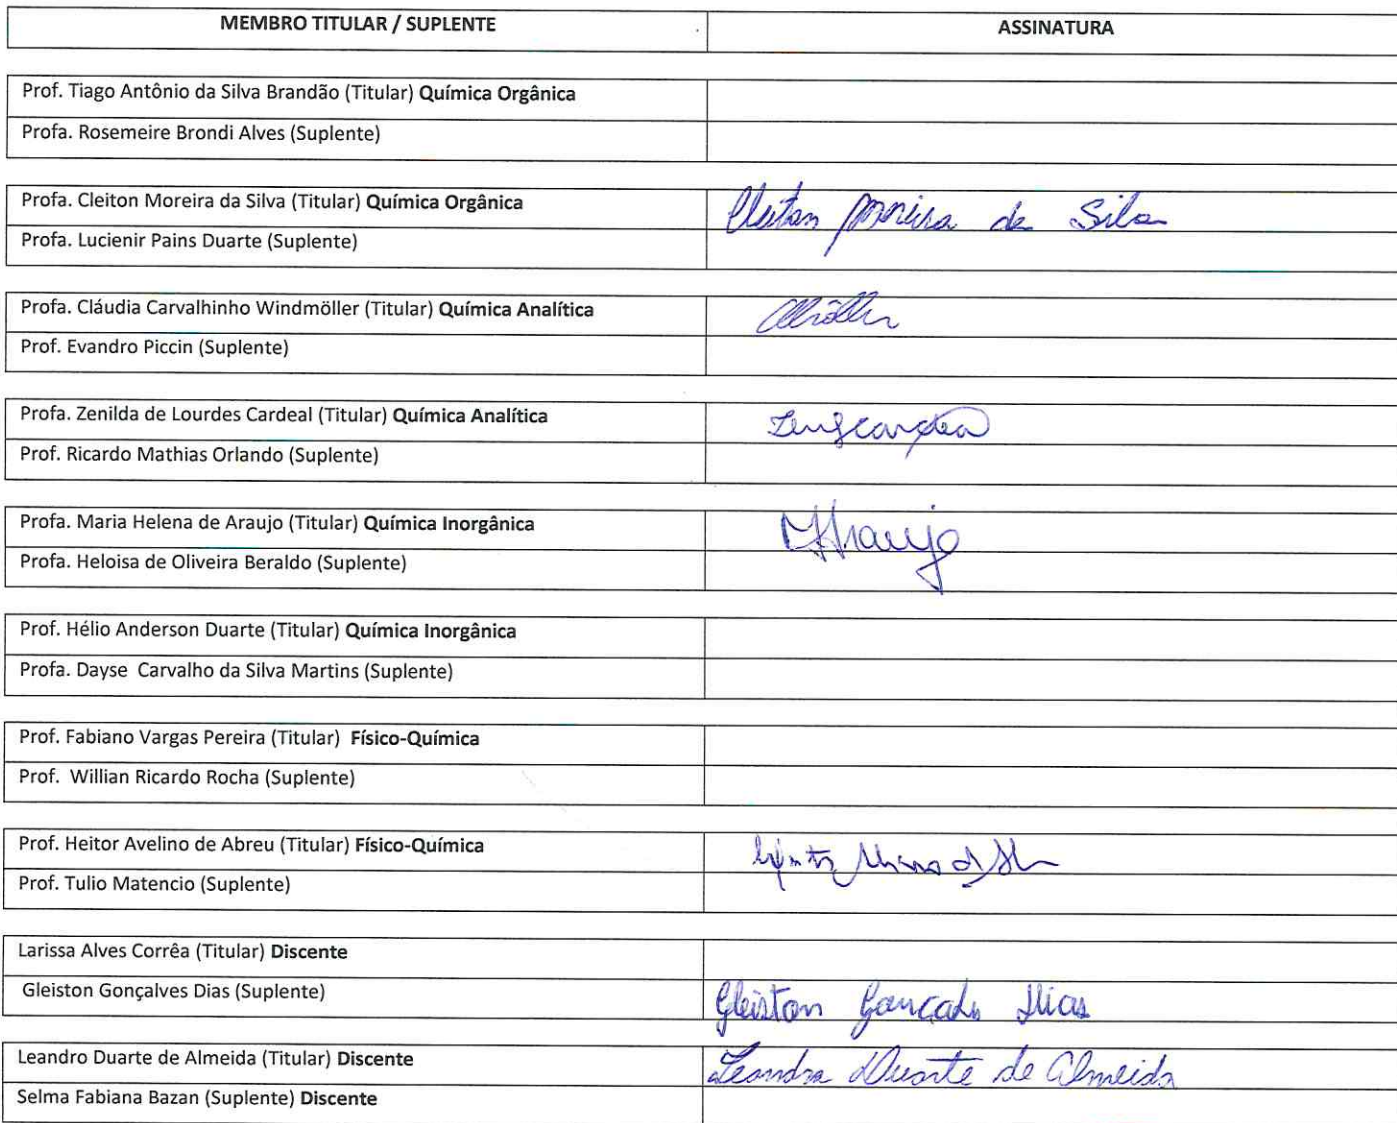 MEMBRO TITULAR / SUPLENTE ASSINATURA
Prof. Tiago Antônio da Silva Brandão (Titular) Química Orgânica
Profa. Rosemeire Brondi Alves (Suplente)
Profa. Cleiton Moreira da Silva (Titular) Química Orgânica Cleiton Moreira da Silva
Profa. Lucienir Pains Duarte (Suplente)
Profa. Cláudia Carvalhinho Windmöller (Titular) Química Analítica
Prof. Evandro Piccin (Suplente)
Profa. Zenilda de Lourdes Cardeal (Titular) Química Analítica
Prof. Ricardo Mathias Orlando (Suplente)
Profa. Maria Helena de Araujo (Titular) Química Inorgânica MHAraujo
Profa. Heloisa de Oliveira Beraldo (Suplente)
Prof. Hélio Anderson Duarte (Titular) Química Inorgânica
Profa. Dayse Carvalho da Silva Martins (Suplente)
Prof. Fabiano Vargas Pereira (Titular) Físico-Química
Prof. Willian Ricardo Rocha (Suplente)
Prof. Heitor Avelino de Abreu (Titular) Físico-Química
Prof. Tulio Matencio (Suplente)
Larissa Alves Corrêa (Titular) Discente
Gleiston Gonçalves Dias (Suplente) Gleiston Gonçalves Dias
Leandro Duarte de Almeida (Titular) Discente Leandro Duarte de Almeida
Selma Fabiana Bazan (Suplente) Discente